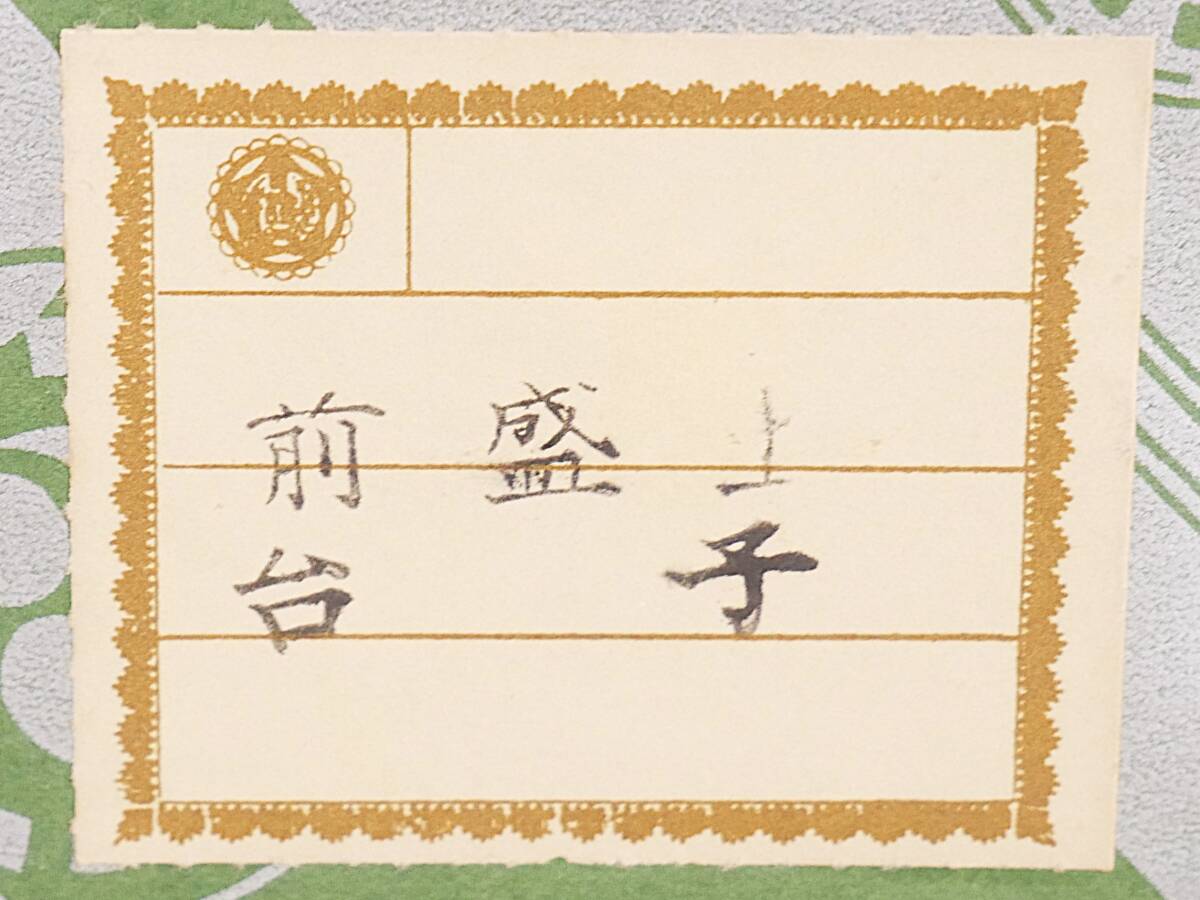 前 盛 上
台 子